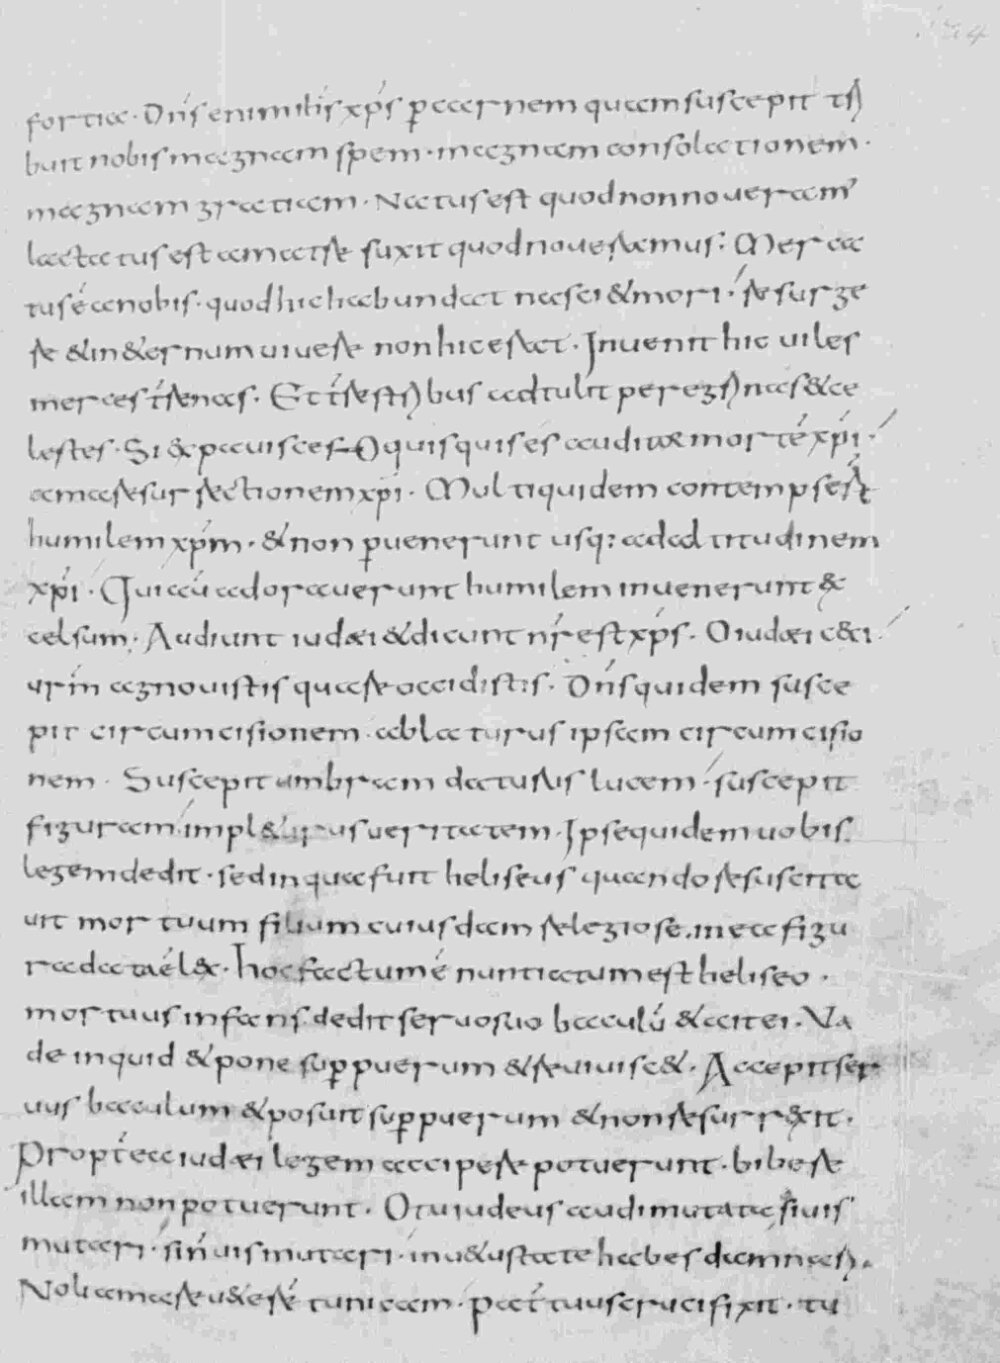 fortia. Dn̄s enim ihs xp̄s p carnem quam suscepit tri
buit nobis magnam spem. magnam consolationem.
magnam gratiam. Natus est quod non noueram'
lactatus est a matre suxit quod noueramus. Merca
tus ē a nobis. quod hic habundat nasci & mori. resurge
re & in &ernum uiuere non hic erat. Inuenit hic uiles
merces t̄renas. Et t̄restribus adtulit peregrinas & ce
lestes. Si expauisces O quisquis es auditor mortē xp̄i.
ama resurrectionem xp̄i. Multi quidem contempser
humilem xp̄m. & non puenerunt usq; ad altitudinem
xp̄i. Qui aū adorauerunt humilem inuenerunt &
celsum. Audiunt iudæi & dicunt nr̄ est xp̄s. O iudæi c&i
urm̄ agnouistis quare occidistis. Dn̄s quidem susce
pit circumcisionem ablaturus ipsam circumcisio
nem. Suscepit umbram daturus lucem. suscepit
figuram impl&urus ueritatem. Ipse quidem uobis
legem dedit. sed in qua fuit heliseus quando resuscita
uit mortuum filium cuiusdam relegiose. mea figu
rada
hoc factum ē nuntiatum est heliseo.
mortuus infans. dedit seruo suo baculū & ait ei. Va
de inquid & pone sup puerum & reuiuisc&. Accepit ser
uus baculum & posuit sup puerum & non resurrexit.
Propt̄ea iudæi legem accipere potuerunt. bibere
illam non potuerunt. O tu iudeus audi mutata si uis
mutari. si n̄ uis mutari. in u&ustate habes damnari.
Noli amare u&erē tunicam. pat̄ tuus crucifixit. tu